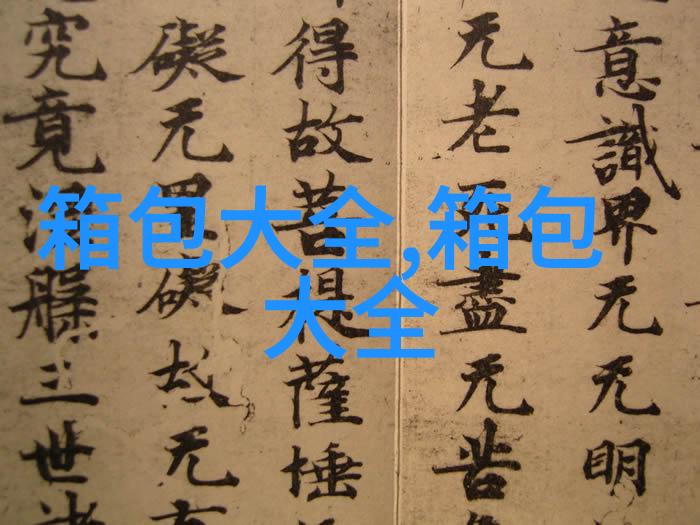 箱包大全,箱包
大全
意識界无无明
无老死盡无苦
得故菩提薩埵
礙无罣礙故无
究竟涅槃三世